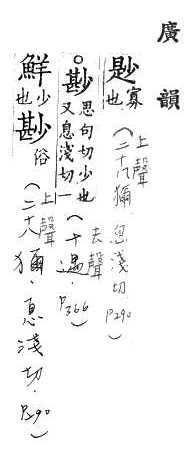 廣韻
尟寡也(上聲二十八獮息淺切P290)
。尠思句切少也又息淺切一(去聲十遇.P366)
鮮少也尠俗(上聲二十八獮.息淺切.P290)